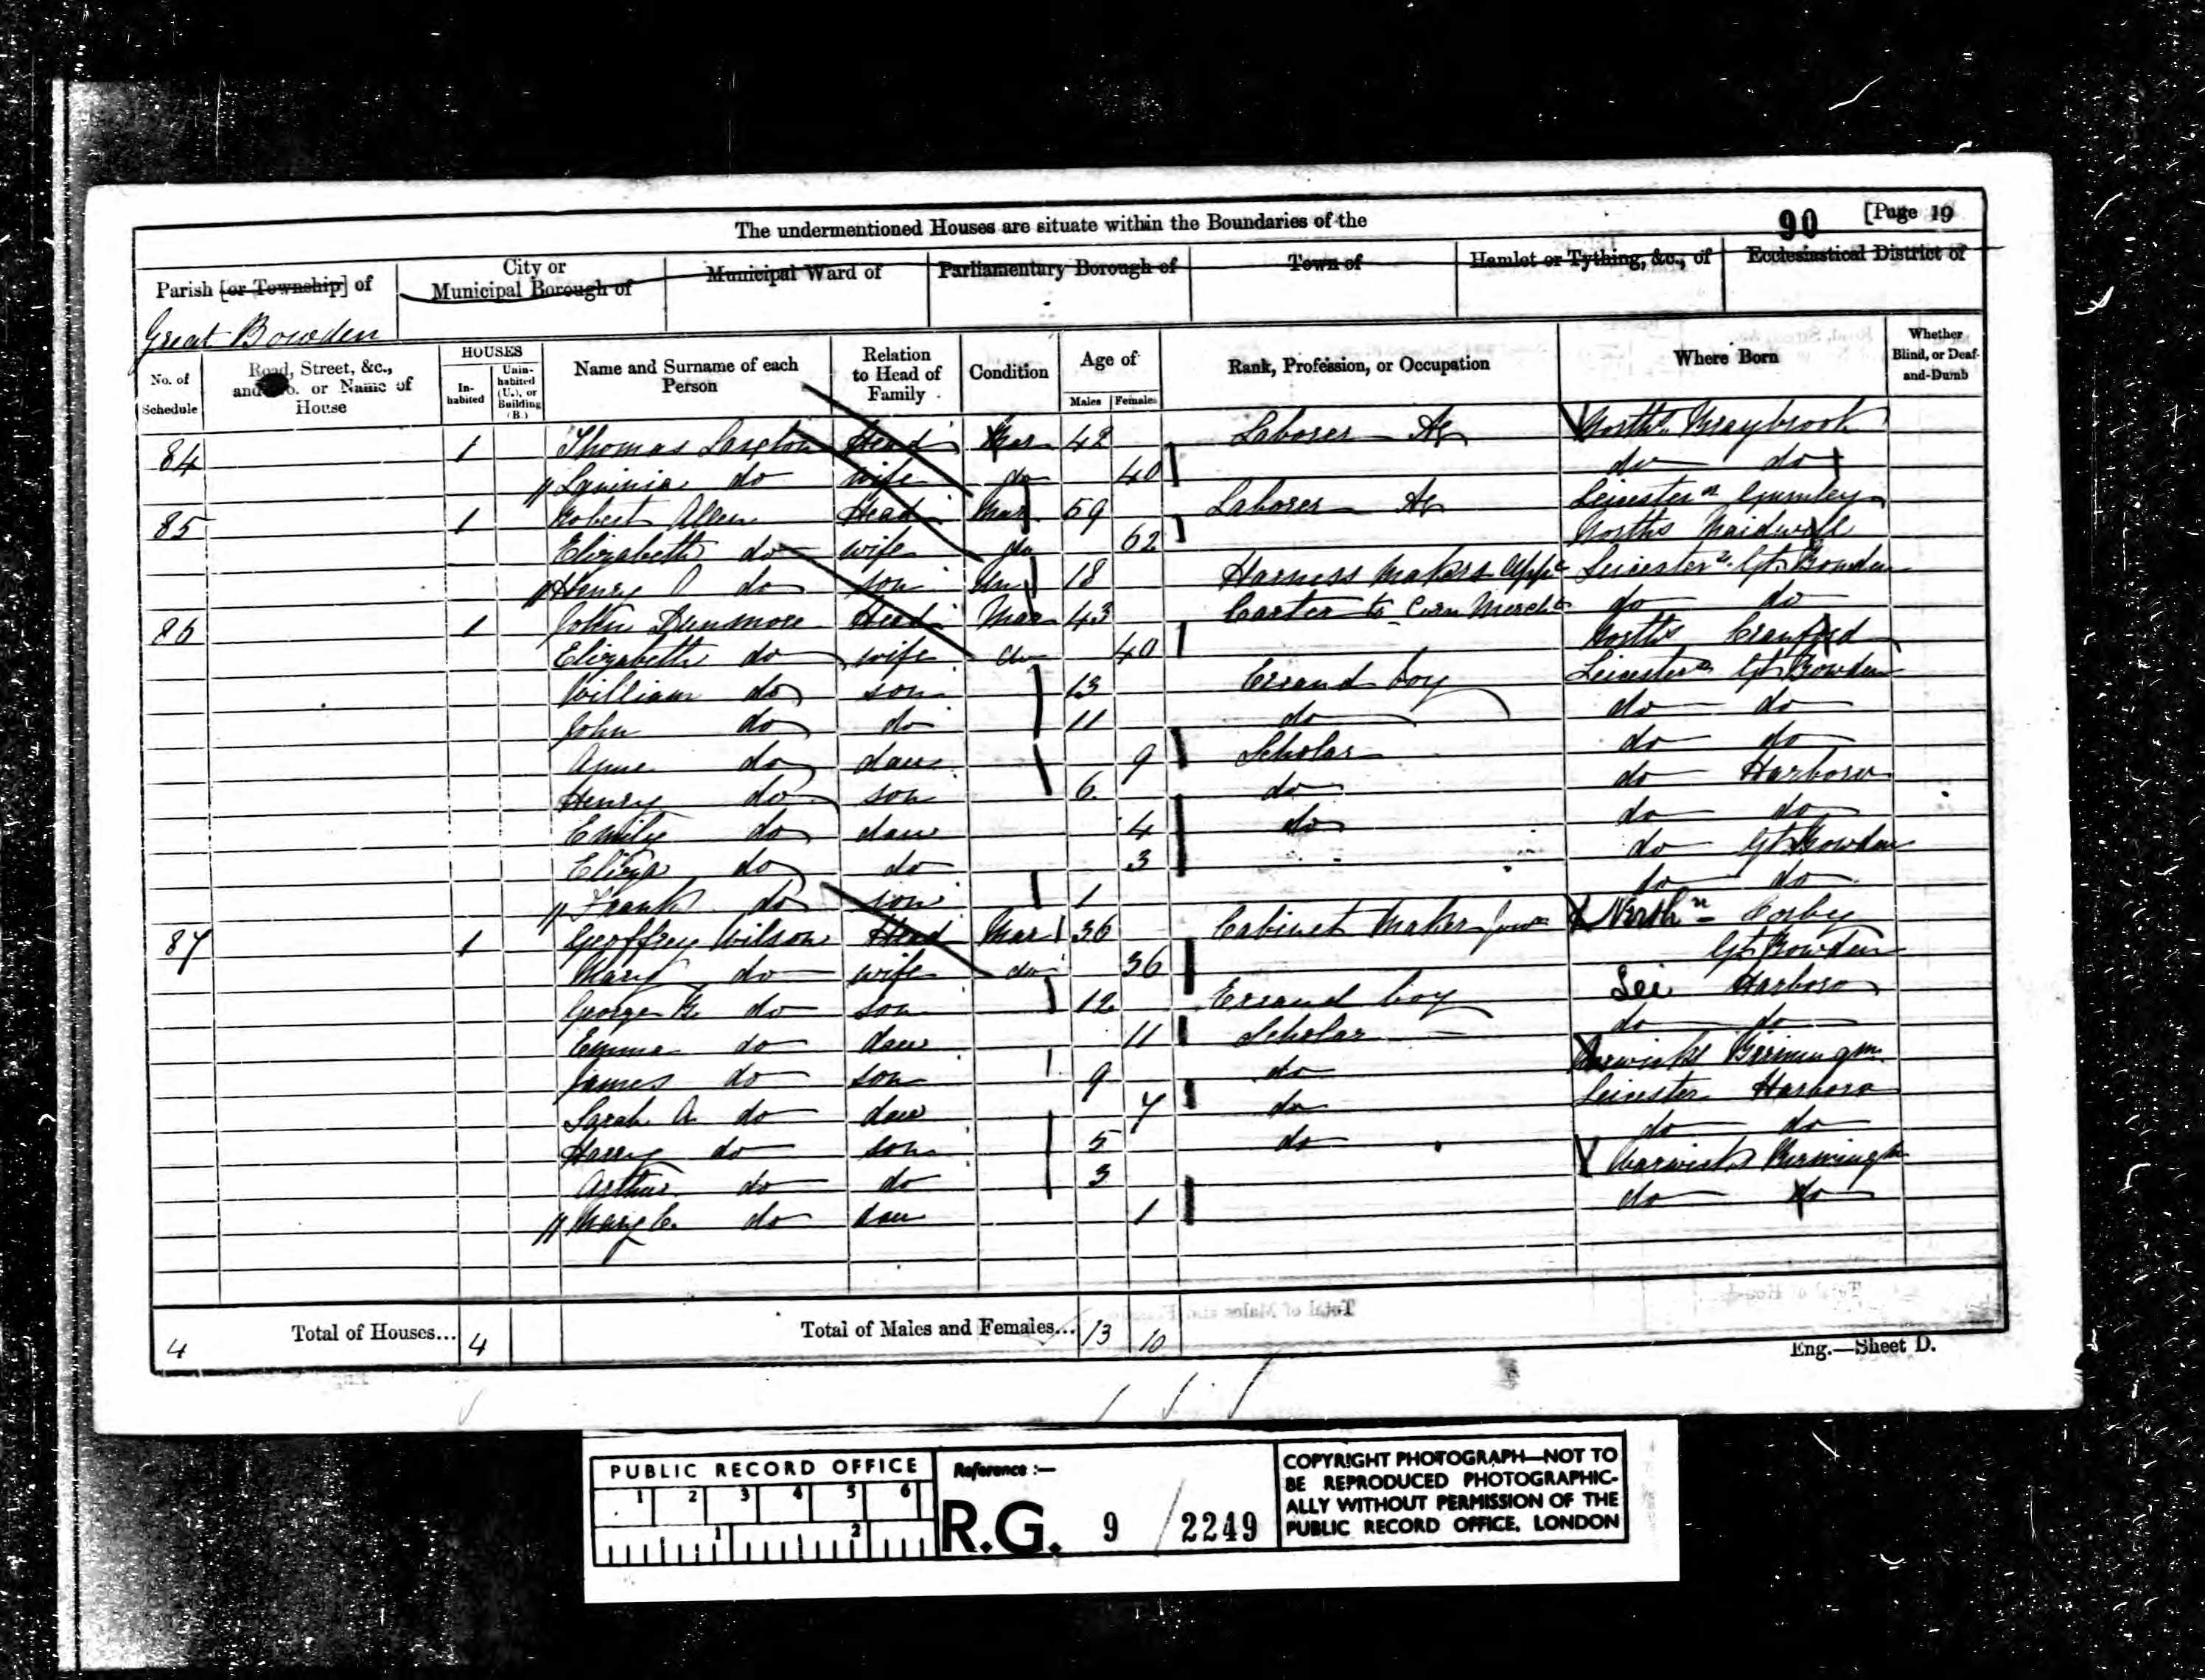 The undermentioned Houses are situate within the Boundaries of the
90 [Page 19
Parish [or Township] of
City or Municipal Borough of
Municipal Ward of
Parliamentary Borough of
Town of
Hamlet or Tything, &c., of
Ecclesiastical District of
Great Bowden
No. of Schedule
Road, Street, &c., and No. or Name of House
HOUSES
In-habited
Unin-habited (U.), or Building (B.)
Name and Surname of each Person
Relation to Head of Family
Condition
Age of
Males Females
Rank, Profession, or Occupation
Where Born
Whether Blind, or Deaf-and-Dumb
84 1 Thomas Head Mar 42 Laborer Ag North Braybrook
Lavinia do wife do 40 do do
85 1 Robert Allen Head Mar 59 Laborer Ag Leicester Gumley
Elizabeth do wife do 62 Norths Maidwell
Henry do son Un 18 Harness Makers App Leicester Gt Bowden
86 1 John Dunmore Head Mar 43 Carter to Corn Mercht do do
Elizabeth do wife do 40 Norths Cranford
William do son 13 Errand boy Leicester Gt Bowden
John do do 11 do do do
Anne do dau 9 Scholar do do
Henry do son 6 do do Harboro
Emily do dau 4 do do do
Eliza do do 3 do Gt Bowden
Frank do son 1 do do
87 1 Geoffrey Wilson Head Mar 36 Cabinet Maker North Corby
Mary do wife do 36 Gt Bowden
George do son 12 Errand boy Lei Harboro
Emma do dau 11 Scholar do do
James do son 9 do Warwicks Birmingm
Sarah A do dau 7 do Leicester Harboro
Harry do son 5 do do do
Arthur do do 3 Warwicks Birmingm
Mary E. do dau 1 do do
4 Total of Houses... 4 Total of Males and Females... 13 10
Eng.—Sheet D.
PUBLIC RECORD OFFICE
1 2 3 4 5 6
1 2
Reference :—
R.G. 9 / 2249
COPYRIGHT PHOTOGRAPH—NOT TO
BE REPRODUCED PHOTOGRAPHIC-
ALLY WITHOUT PERMISSION OF THE
PUBLIC RECORD OFFICE, LONDON